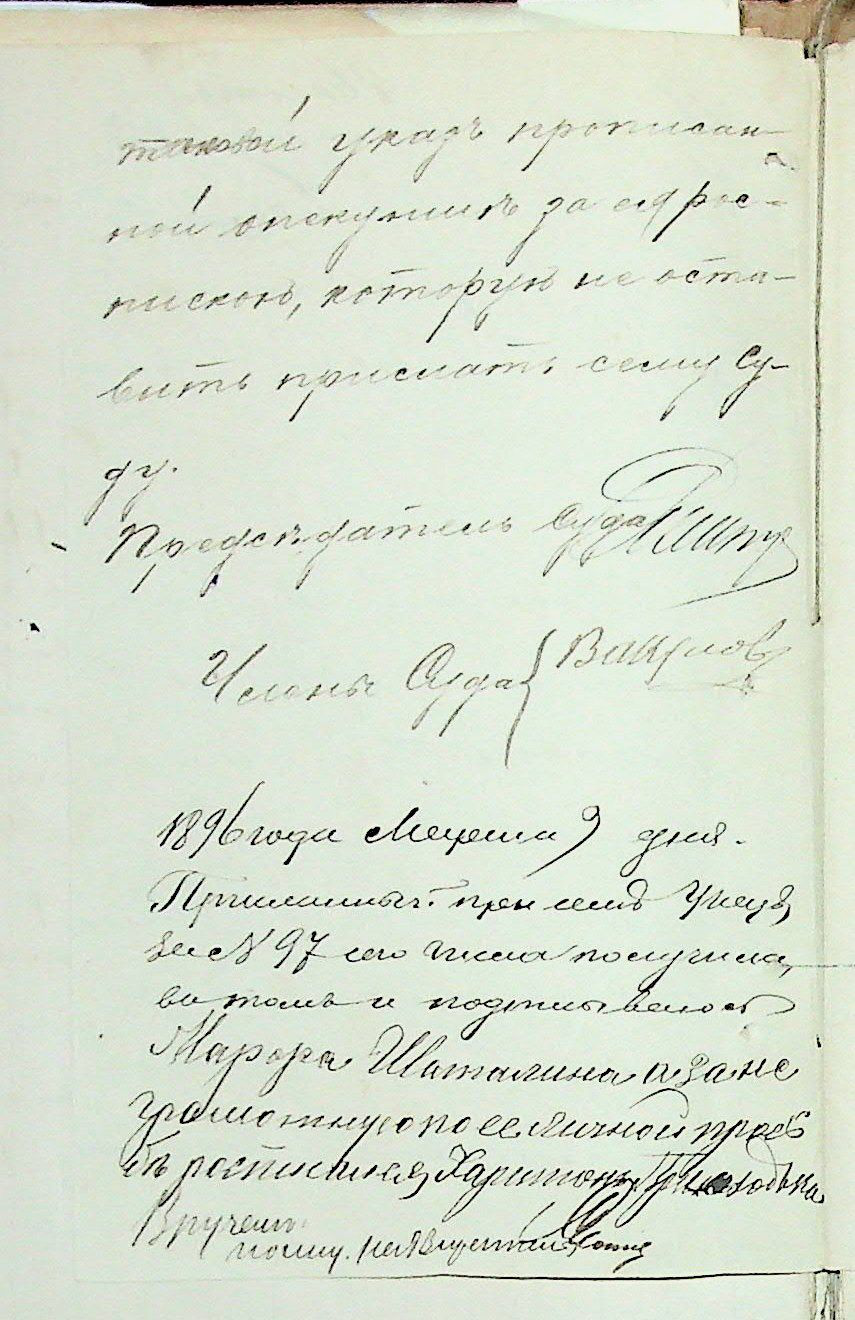 таковой указъ прописан-
ной опекуншѣ за ея рос-
пиской, которую не оста-
вить прислать сему Су-
ду.
Предсѣдатель Суда
Члены Суда { Вакулов
1896 года Марта 9 дня.
при семъ Указъ
за № 97 сего числа получила,
въ томъ и подписываюсь
Марфа Шаталина а за не
грамотную по ее личной прось
бѣ ростисался Харитонъ Приходька
Вручилъ